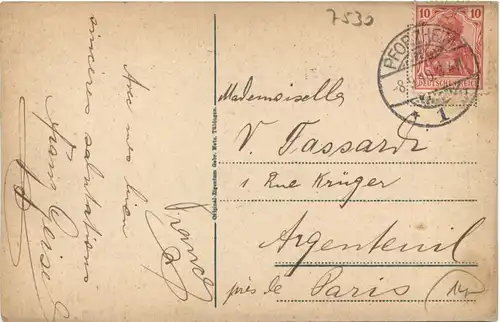 7530
Avec nos bien
sincères salutations
Frans Geise
Original-Eigentum Gebr. Metz, Tübingen.
10 10
DEUTSCHES REICH
PFORZHEIM
* 1
Mademoiselle
V. Tassard
1 Rue Krüger
Argenteuil
près de Paris
France